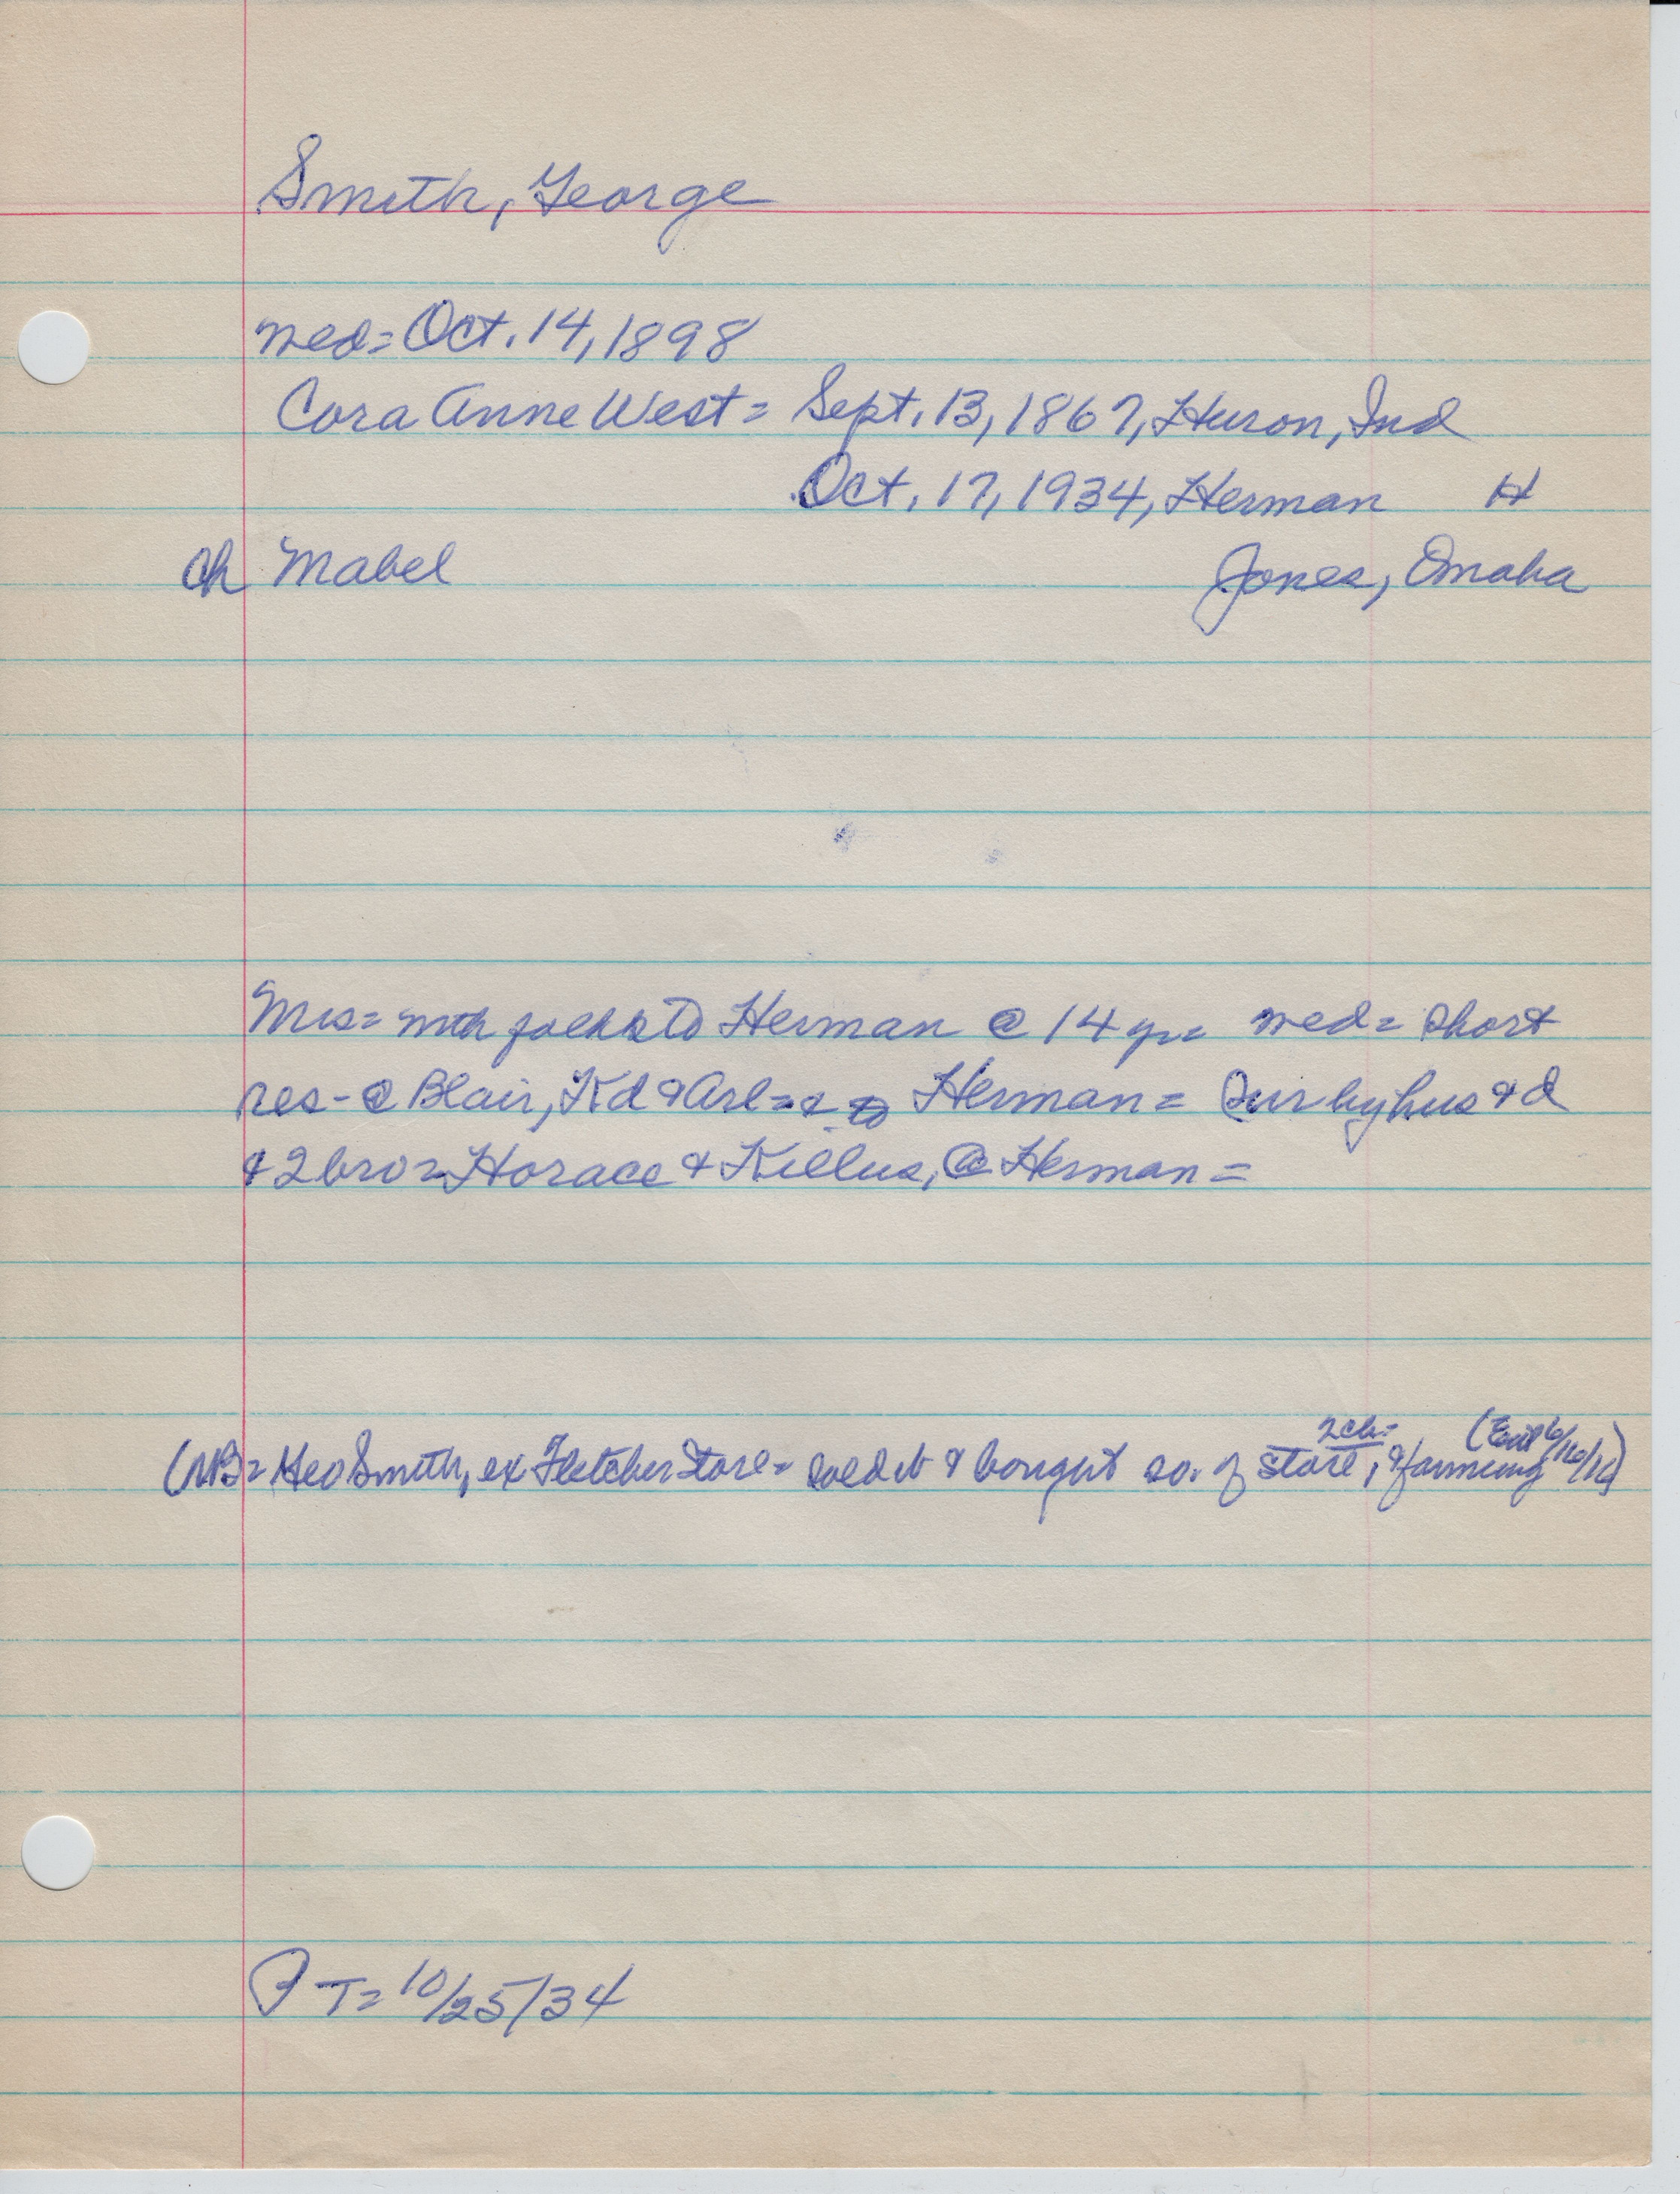 Smith, George
wed= Oct. 14, 1898
Cora Anne West = Sept. 13, 1867, Huron, Ind
Oct. 17, 1934, Herman H
ch Mabel Jones, Omaha
Mrs= with folks to Herman @ 14 yr= wed= short
res- @ Blair, Kd & Arl= & to Herman = Sur by hus & d
& 2 bro= Horace & Killus, @ Herman =
2 ch=
(NB= Geo Smith, ex Fletcher Store= sold it & bought so. of store, & farming 6/16/16)
PT= 10/25/34